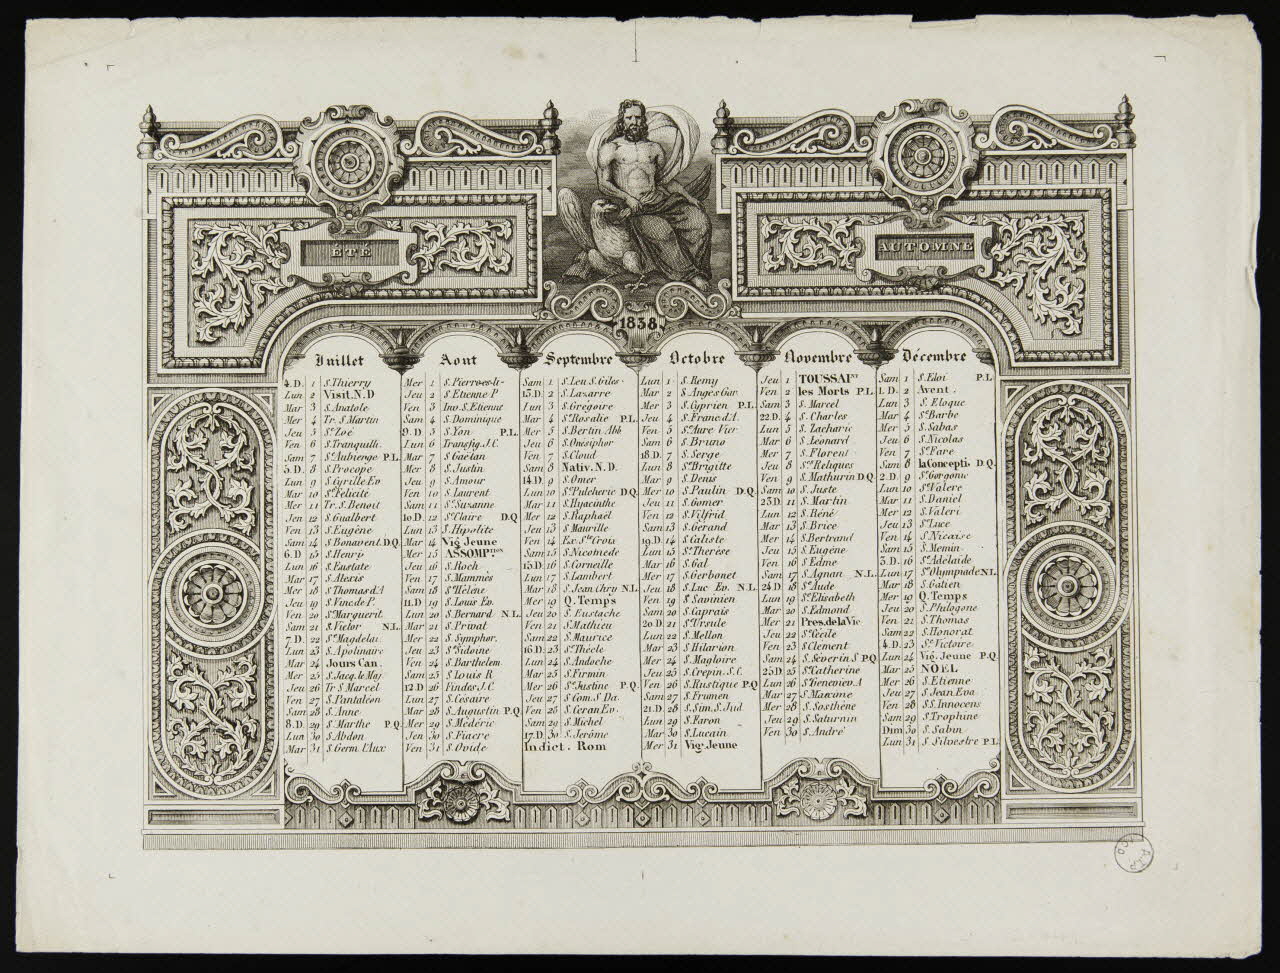 ÉTÉ
AUTOMNE
1838
Juillet
4.D. 1 S. Thierry
Lun 2 Visit. N.D
Mar 3 S. Anatole
Mer 4 Tr. S. Martin
Jeu 5 Ste Zoé
Ven 6 S. Tranquill.
Sam 7 Ste Aubierge P.L.
5.D. 8 S. Procope
Lun 9 S. Cyrille Ev
Mar 10 Ste Félicité
Mer 11 Tr. S. Benoit
Jeu 12 S. Gualbert
Ven 13 S. Eugène
Sam 14 S. Bonavent. D.Q.
6.D 15 S. Henry
Lun 16 S. Eustate
Mar 17 S. Alexis
Mer 18 S. Thomas d'A
Jeu 19 S. Vinc. de P.
Ven 20 Ste Marguerit
Sam 21 S. Victor N.L.
7.D. 22 Ste Magdelai
Lun 23 S. Apolinaire
Mar 24 Jours Can.
Mer 25 S. Jacq. le Maj
Jeu 26 Tr S. Marcel
Ven 27 S. Pantaléon
Sam 28 S. Anne
8.D. 29 Ste Marthe P.Q.
Lun 30 S. Abdon
Mar 31 S. Germ. l'Aux
Aout
Mer 1 S. Pierre-ès-li-
Jeu 2 S. Etienne P
Ven 3 Inv. S. Etienne
Sam 4 S. Dominique
9.D. 5 S. Yon P.L.
Lun 6 Transfig. J.C.
Mar 7 S. Gaëtan
Mer 8 S. Justin
Jeu 9 S. Amour
Ven 10 S. Laurent
Sam 11 Ste Suzanne
10.D. 12 Ste Claire D.Q
Lun 13 S. Hipolite
Mar 14 Vig. Jeune
Mer 15 ASSOMP.TION
Jeu 16 S. Roch
Ven 17 S. Mammès
Sam 18 Ste Hélène
11.D 19 S. Louis Ev.
Lun 20 S. Bernard N.L.
Mar 21 S. Privat
Mer 22 S. Symphor.
Jeu 23 S. Sidoine
Ven 24 S. Barthelem
Sam 25 S. Louis R
12.D 26 Fin des J.C
Lun 27 S. Césaire
Mar 28 S. Augustin P.Q.
Mer 29 S. Médéric
Jeu 30 S. Fiacre
Ven 31 S. Ovide
Septembre
Sam 1 S. Leu S. Giles
13.D. 2 S. Lazarre
Lun 3 S. Grégoire
Mar 4 Ste Rosalie P.L.
Mer 5 S. Bertin Abb
Jeu 6 S. Onésiphor
Ven 7 S. Cloud
Sam 8 Nativ. N.D.
14.D. 9 S. Omer
Lun 10 Ste Pulcherie D.Q.
Mar 11 S. Hyacinthe
Mer 12 S. Raphaël
Jeu 13 S. Maurille
Ven 14 Ex. Ste Croix
Sam 15 S. Nicomede
15.D. 16 S. Corneille
Lun 17 S. Lambert
Mar 18 S. Jean Chry N.L.
Mer 19 Q. Temps
Jeu 20 S. Eustache
Ven 21 S. Mathieu
Sam 22 S. Maurice
16.D. 23 Ste Thècle
Lun 24 S. Andoche
Mar 25 S. Firmin
Mer 26 Ste Justine P.Q.
Jeu 27 S. Côm. S. Da.
Ven 28 S. Ceran Ev.
Sam 29 S. Michel
17.D. 30 S. Jerôme
Indict. Rom
Octobre
Lun 1 S. Remy
Mar 2 S. Anges Gar
Mer 3 S. Cyprien P.L.
Jeu 4 S. Franc. d'A.
Ven 5 Ste Aure Vier
Sam 6 S. Bruno
18.D. 7 S. Serge
Lun 8 Ste Brigitte
Mar 9 S. Denis
Mer 10 S. Paulin D.Q.
Jeu 11 S. Gomer
Ven 12 S. Vilfrid
Sam 13 S. Gerand
19.D. 14 S. Caliste
Lun 15 Ste Therèse
Mar 16 S. Gal
Mer 17 S. Cerbonet
Jeu 18 S. Luc Ev. N.L.
Ven 19 S. Savinien
Sam 20 S. Caprais
20.D 21 Ste Ursule
Lun 22 S. Mellon
Mar 23 S. Hilarion
Mer 24 S. Magloire
Jeu 25 S. Crepin. S.C.
Ven 26 S. Rustique P.Q.
Sam 27 S. Frumen
21.D. 28 S. Sim. S. Jud
Lun 29 S. Faron
Mar 30 S. Lucain
Mer 31 Vig. Jeune
Novembre
Jeu 1 TOUSSAINT
Ven 2 les Morts P.L.
Sam 3 S. Marcel
22.D. 4 S. Charles
Lun 5 S. Zacharie
Mar 6 S. Léonard
Mer 7 S. Florent
Jeu 8 Stes Reliques
Ven 9 S. Mathurin D.Q.
Sam 10 S. Juste
23.D. 11 S. Martin
Lun 12 S. Réné
Mar 13 S. Brice
Mer 14 S. Bertrand
Jeu 15 S. Eugène
Ven 16 S. Edme
Sam 17 S. Agnan N.L.
24.D. 18 Ste Aude
Lun 19 S. Elisabeth
Mar 20 S. Edmond
Mer 21 Pres. de la Vie
Jeu 22 Ste Cécile
Ven 23 S. Clément
Sam 24 S. Severin S P.Q.
25.D. 25 Ste Catherine
Lun 26 Ste Geneviev. A
Mar 27 S. Maxime
Mer 28 S. Sosthène
Jeu 29 S. Saturnin
Ven 30 S. André
Décembre
Sam 1 S. Eloi P.L
1.D. 2 Avent.
Lun 3 S. Eloque
Mar 4 Ste Barbe
Mer 5 S. Sabas
Jeu 6 S. Nicolas
Ven 7 Ste Fare
Sam 8 la Concepti. D.Q.
2.D. 9 Ste Gorgonie
Lun 10 Ste Valere
Mar 11 S. Daniel
Mer 12 S. Valeri
Jeu 13 Ste Luce
Ven 14 S. Nicaise
Sam 15 S. Memin
3.D. 16 Ste Adelaïde
Lun 17 Ste Olympiade N.L.
Mar 18 S. Gatien
Mer 19 Q. Temps
Jeu 20 S. Philogone
Ven 21 S. Thomas
Sam 22 S. Honorat
4.D. 23 Ste Victoire
Lun 24 Vig. Jeune P.Q.
Mar 25 NOEL
Mer 26 S. Etienne
Jeu 27 S. Jean Eva
Ven 28 S.S. Innocens
Sam 29 S. Trophine
Dim 30 S. Sabin
Lun 31 S. Silvestre P.L.